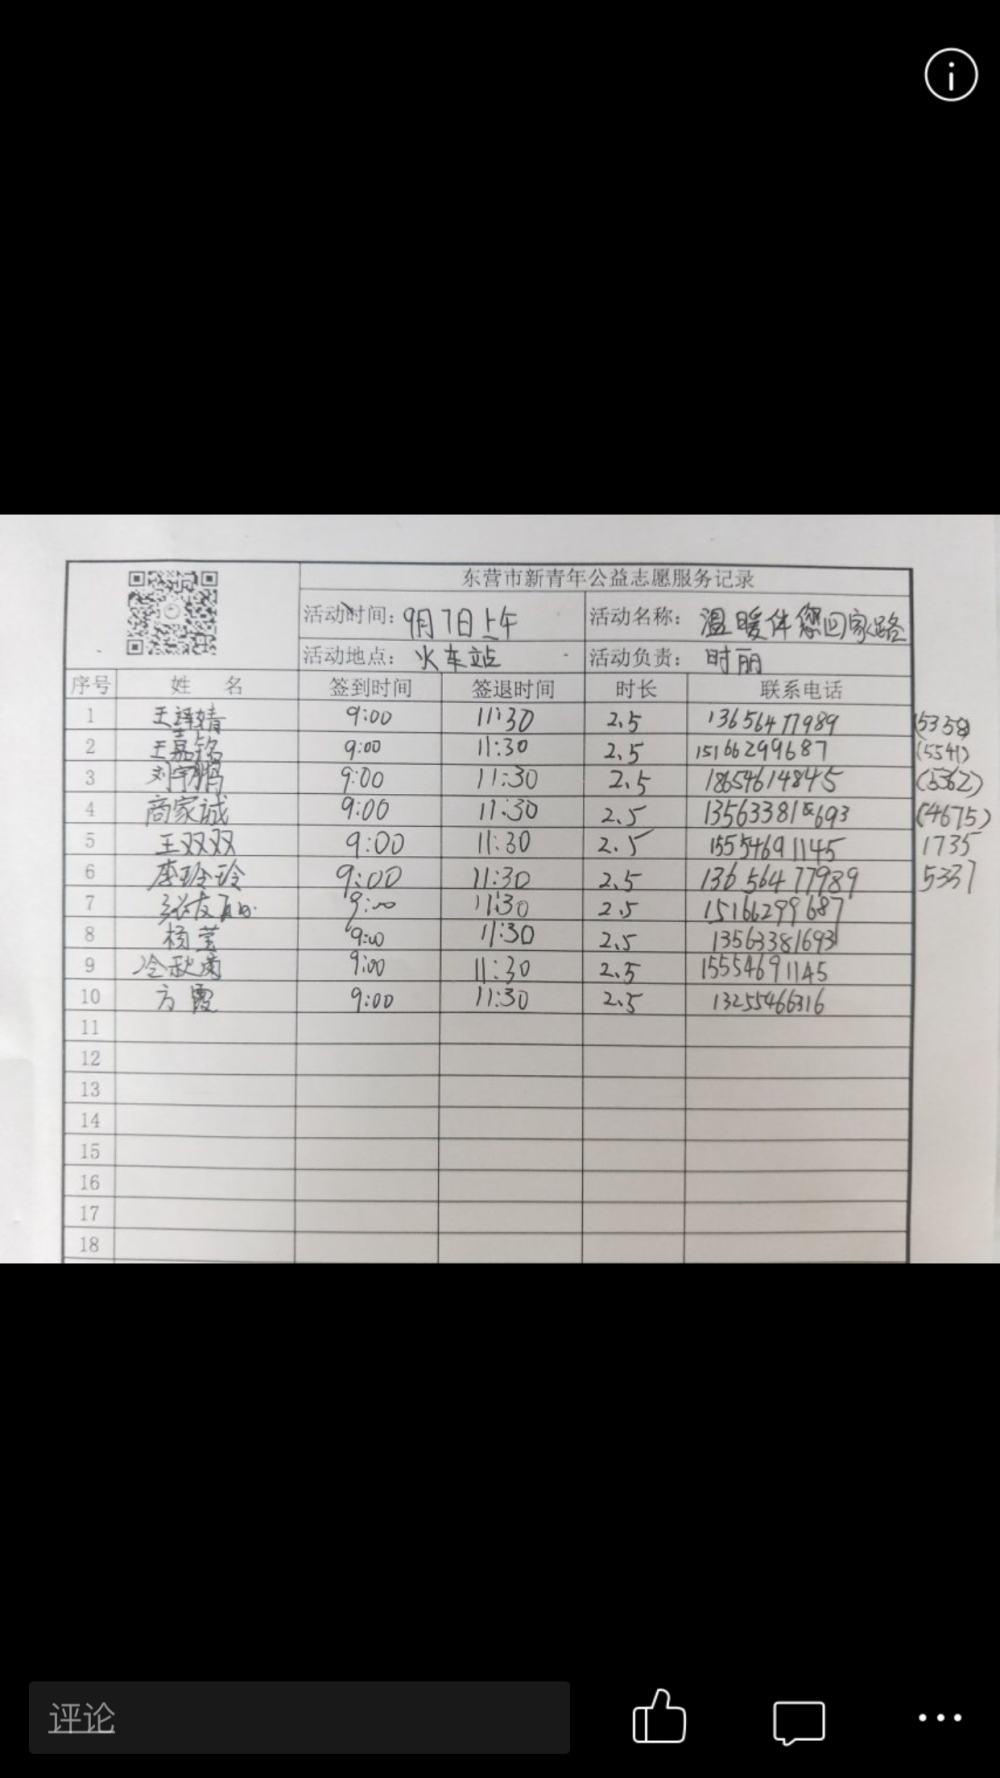 东营市新青年公益志愿服务记录
活动时间：9月7日上午 活动名称：温暖伴您回家路
活动地点：火车站 活动负责：时丽
序号 姓名 签到时间 签退时间 时长 联系电话
1 王 婧 9:00 11:30 2.5 13656477989 (5358)
2 王嘉铭 9:00 11:30 2.5 15166299687 (5541)
3 刘宇鹏 9:00 11:30 2.5 18654614845 (5362)
4 商家诚 9:00 11:30 2.5 13563381693 (4675)
5 王双双 9:00 11:30 2.5 15554691145 1735
6 李玲玲 9:00 11:30 2.5 13656477989 5337
7 9:00 11:30 2.5 15166299687
8 杨莹 9:00 11:30 2.5 13563381693
9 冷秋菊 9:00 11:30 2.5 15554691145
10 方霞 9:00 11:30 2.5 13255466316
11
12
13
14
15
16
17
18
评论